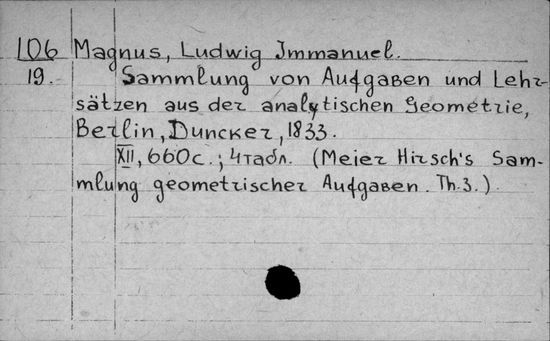 106 Magnus, Ludwig Immanuel.
19. Sammlung von Aufgaben und Lehr-
sätzen aus der analytischen Geometrie,
Berlin, Duncker, 1833.
XII, 660с.; 4табл. (Meier Hirsch's Sam-
mlung geometrischer Aufgaben. Th.3.).